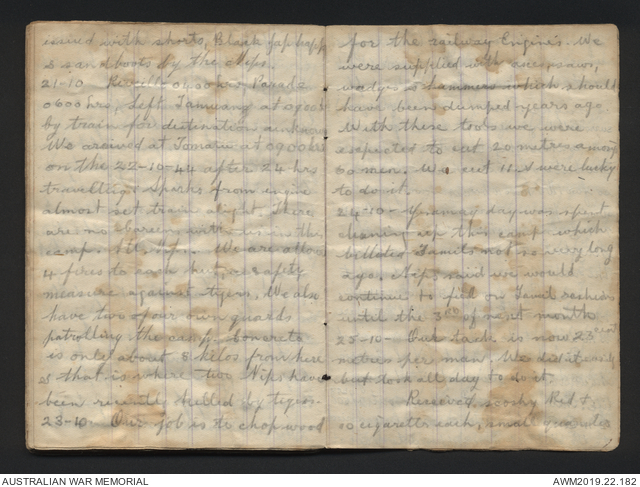 issued with shorts, Black Jap happy
& sand boots by the Nips.
21-10 Reveille 0400 hrs Parade
0600 hrs, left Tamuang at 0900
by train for destination unknown
We arrived at at 0900 hrs
on the 22-10-44 after 24 hrs
travelling. Sparks from engine
almost set train alight. There
are no with us in this
camp. We are allow
4 fires to each hut, as safety
measure against tigers, We also
have two of our own guards
patrolling the camp.
is only about 8 kilos from here
& that is where two Nips have
been recently killed by tigers.
23-10- Our job is to chop wood
for the railway Engines. We
were supplied with axes, saws,
wedges & hammers which should
have been dumped years ago.
With these tools we were
expected to cut 20 metres among
60 men. We cut 11 & were lucky
to do it.
24-10- day was spent
cleaning up this camp which
billeted Tamils not so very long
ago. Nips said we would
continue to feed on Tamil rations
until the 3rd of next month
25-10- Our task is now
metres per man. We did it easily
but took all day to do it.
Received
10 cigarettes each, small
AUSTRALIAN WAR MEMORIAL
AWM2019.22.182